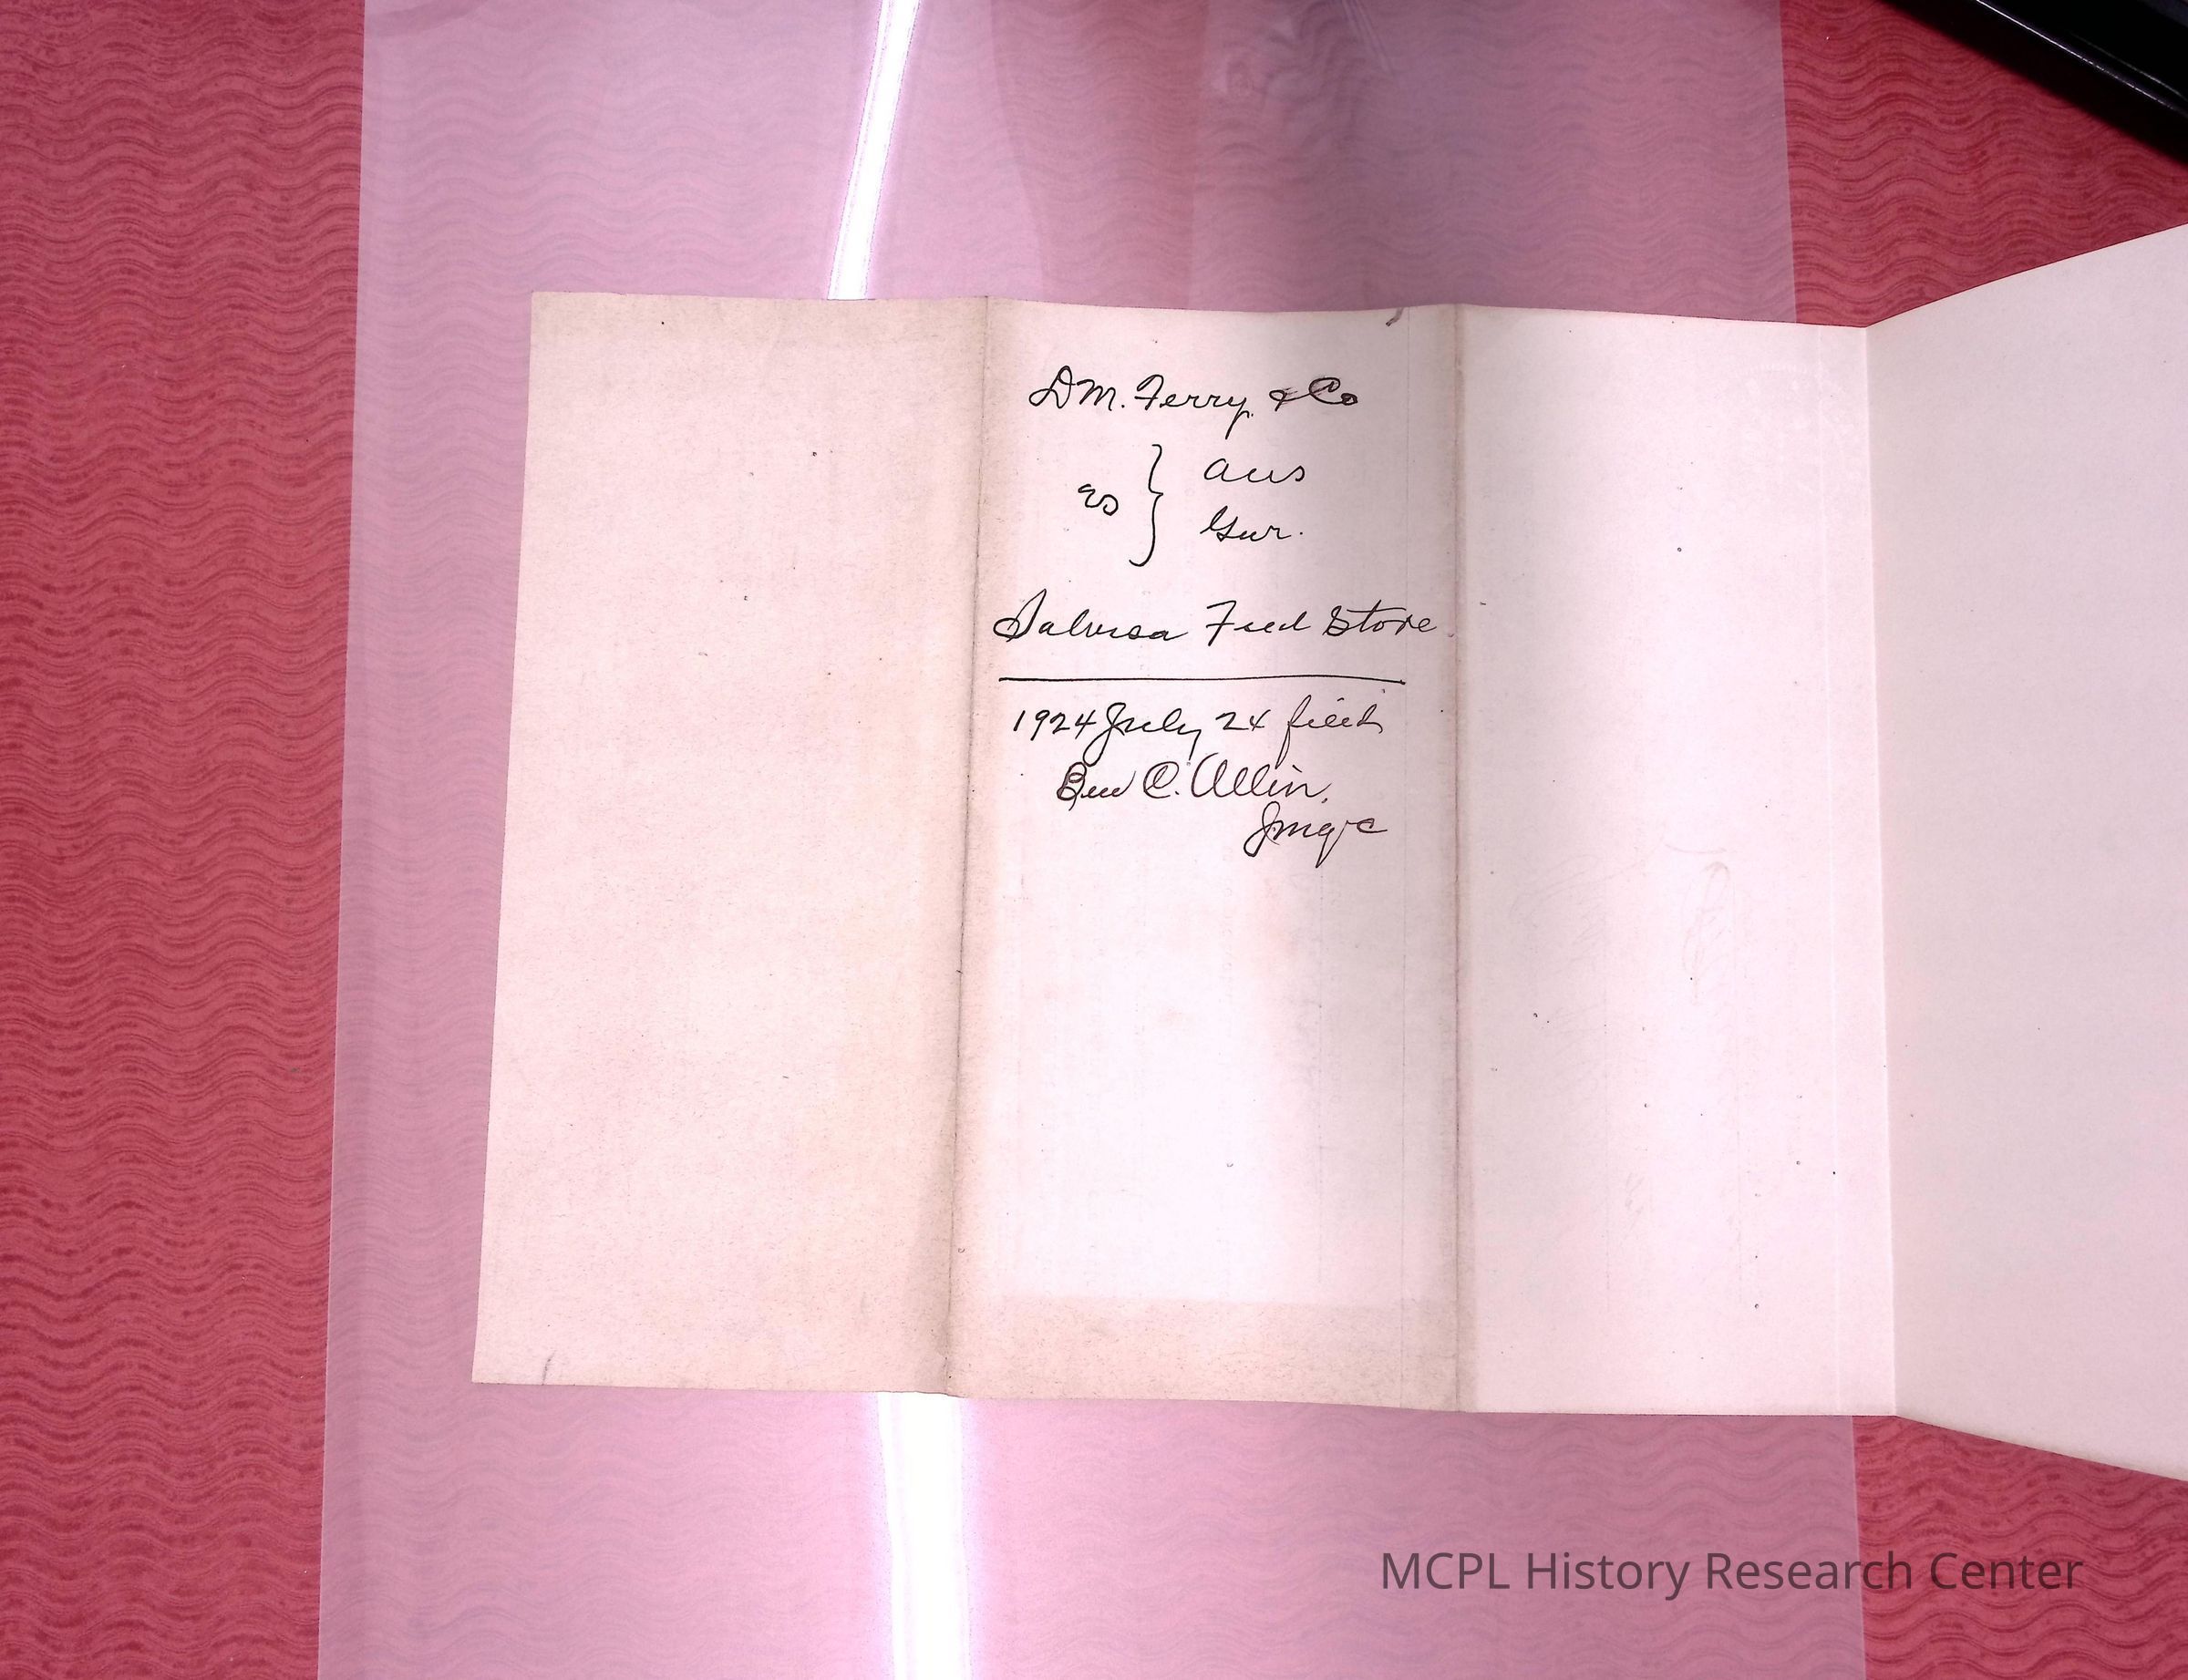 D M. Ferry & Co
vs } Ans
Gur.
Salvisa Feed Store
1924 July 24 filed
Ben C. Allin,
JMQC
MCPL History Research Center